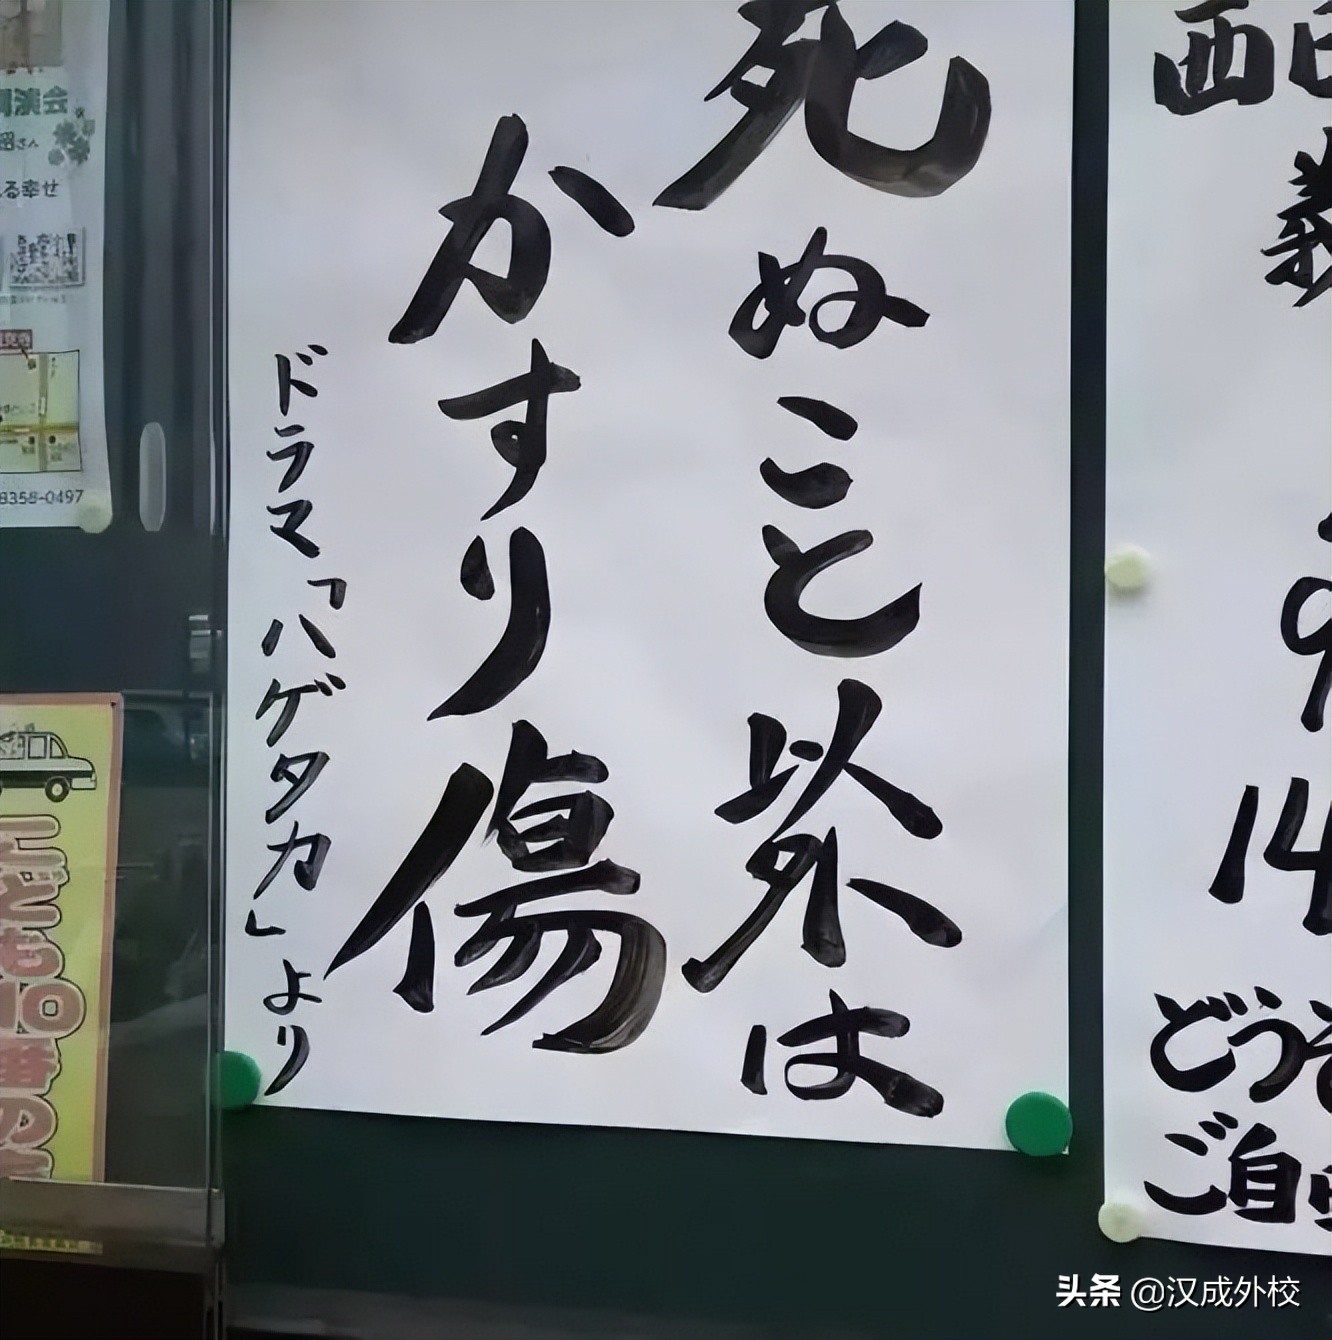 死ぬこと以外は
かすり傷
ドラマ「ハゲタカ」より
西
義
9
14
どうぞ
ご自由
演会
さん
る幸せ
8358-0497
こども110番の
头条 @汉成外校